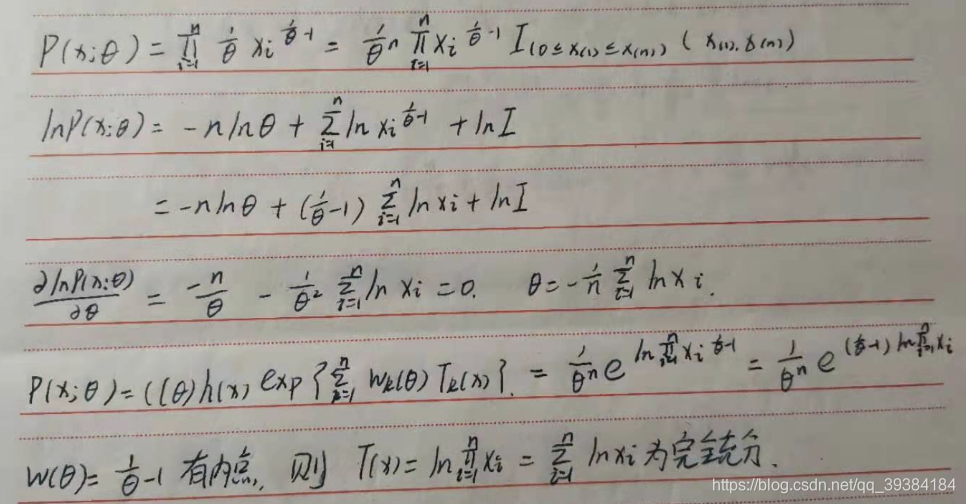 P(x;θ) = ∏_{i=1}^{n} 1/θ x_i^{1/θ -1} = 1/θ^n ∏_{i=1}^{n} x_i^{1/θ -1} I_{(0≤x_{(1)}≤x_{(n)})} (x_{(1)}, x_{(n)})
lnP(x;θ) = -n lnθ + ∑_{i=1}^{n} ln x_i^{1/θ -1} + ln I
= -n lnθ + (1/θ -1) ∑_{i=1}^{n} ln x_i + ln I
∂lnP(x;θ)/∂θ = -n/θ - 1/θ² ∑_{i=1}^{n} ln x_i = 0. θ = -1/n ∑_{i=1}^{n} ln x_i.
P(x;θ) = C(θ) h(x) exp{∑_{i=1}^{n} W_k(θ) T_k(x)}. = 1/θ^n e^{ln ∏_{i=1}^{n} x_i^{1/θ -1}} = 1/θ^n e^{(1/θ -1) ln ∏_{i=1}^{n} x_i}
W(θ) = 1/θ -1 有内点, 则 T(x) = ln ∏_{i=1}^{n} x_i = ∑_{i=1}^{n} ln x_i 为完全充分.
https://blog.csdn.net/qq_39384184